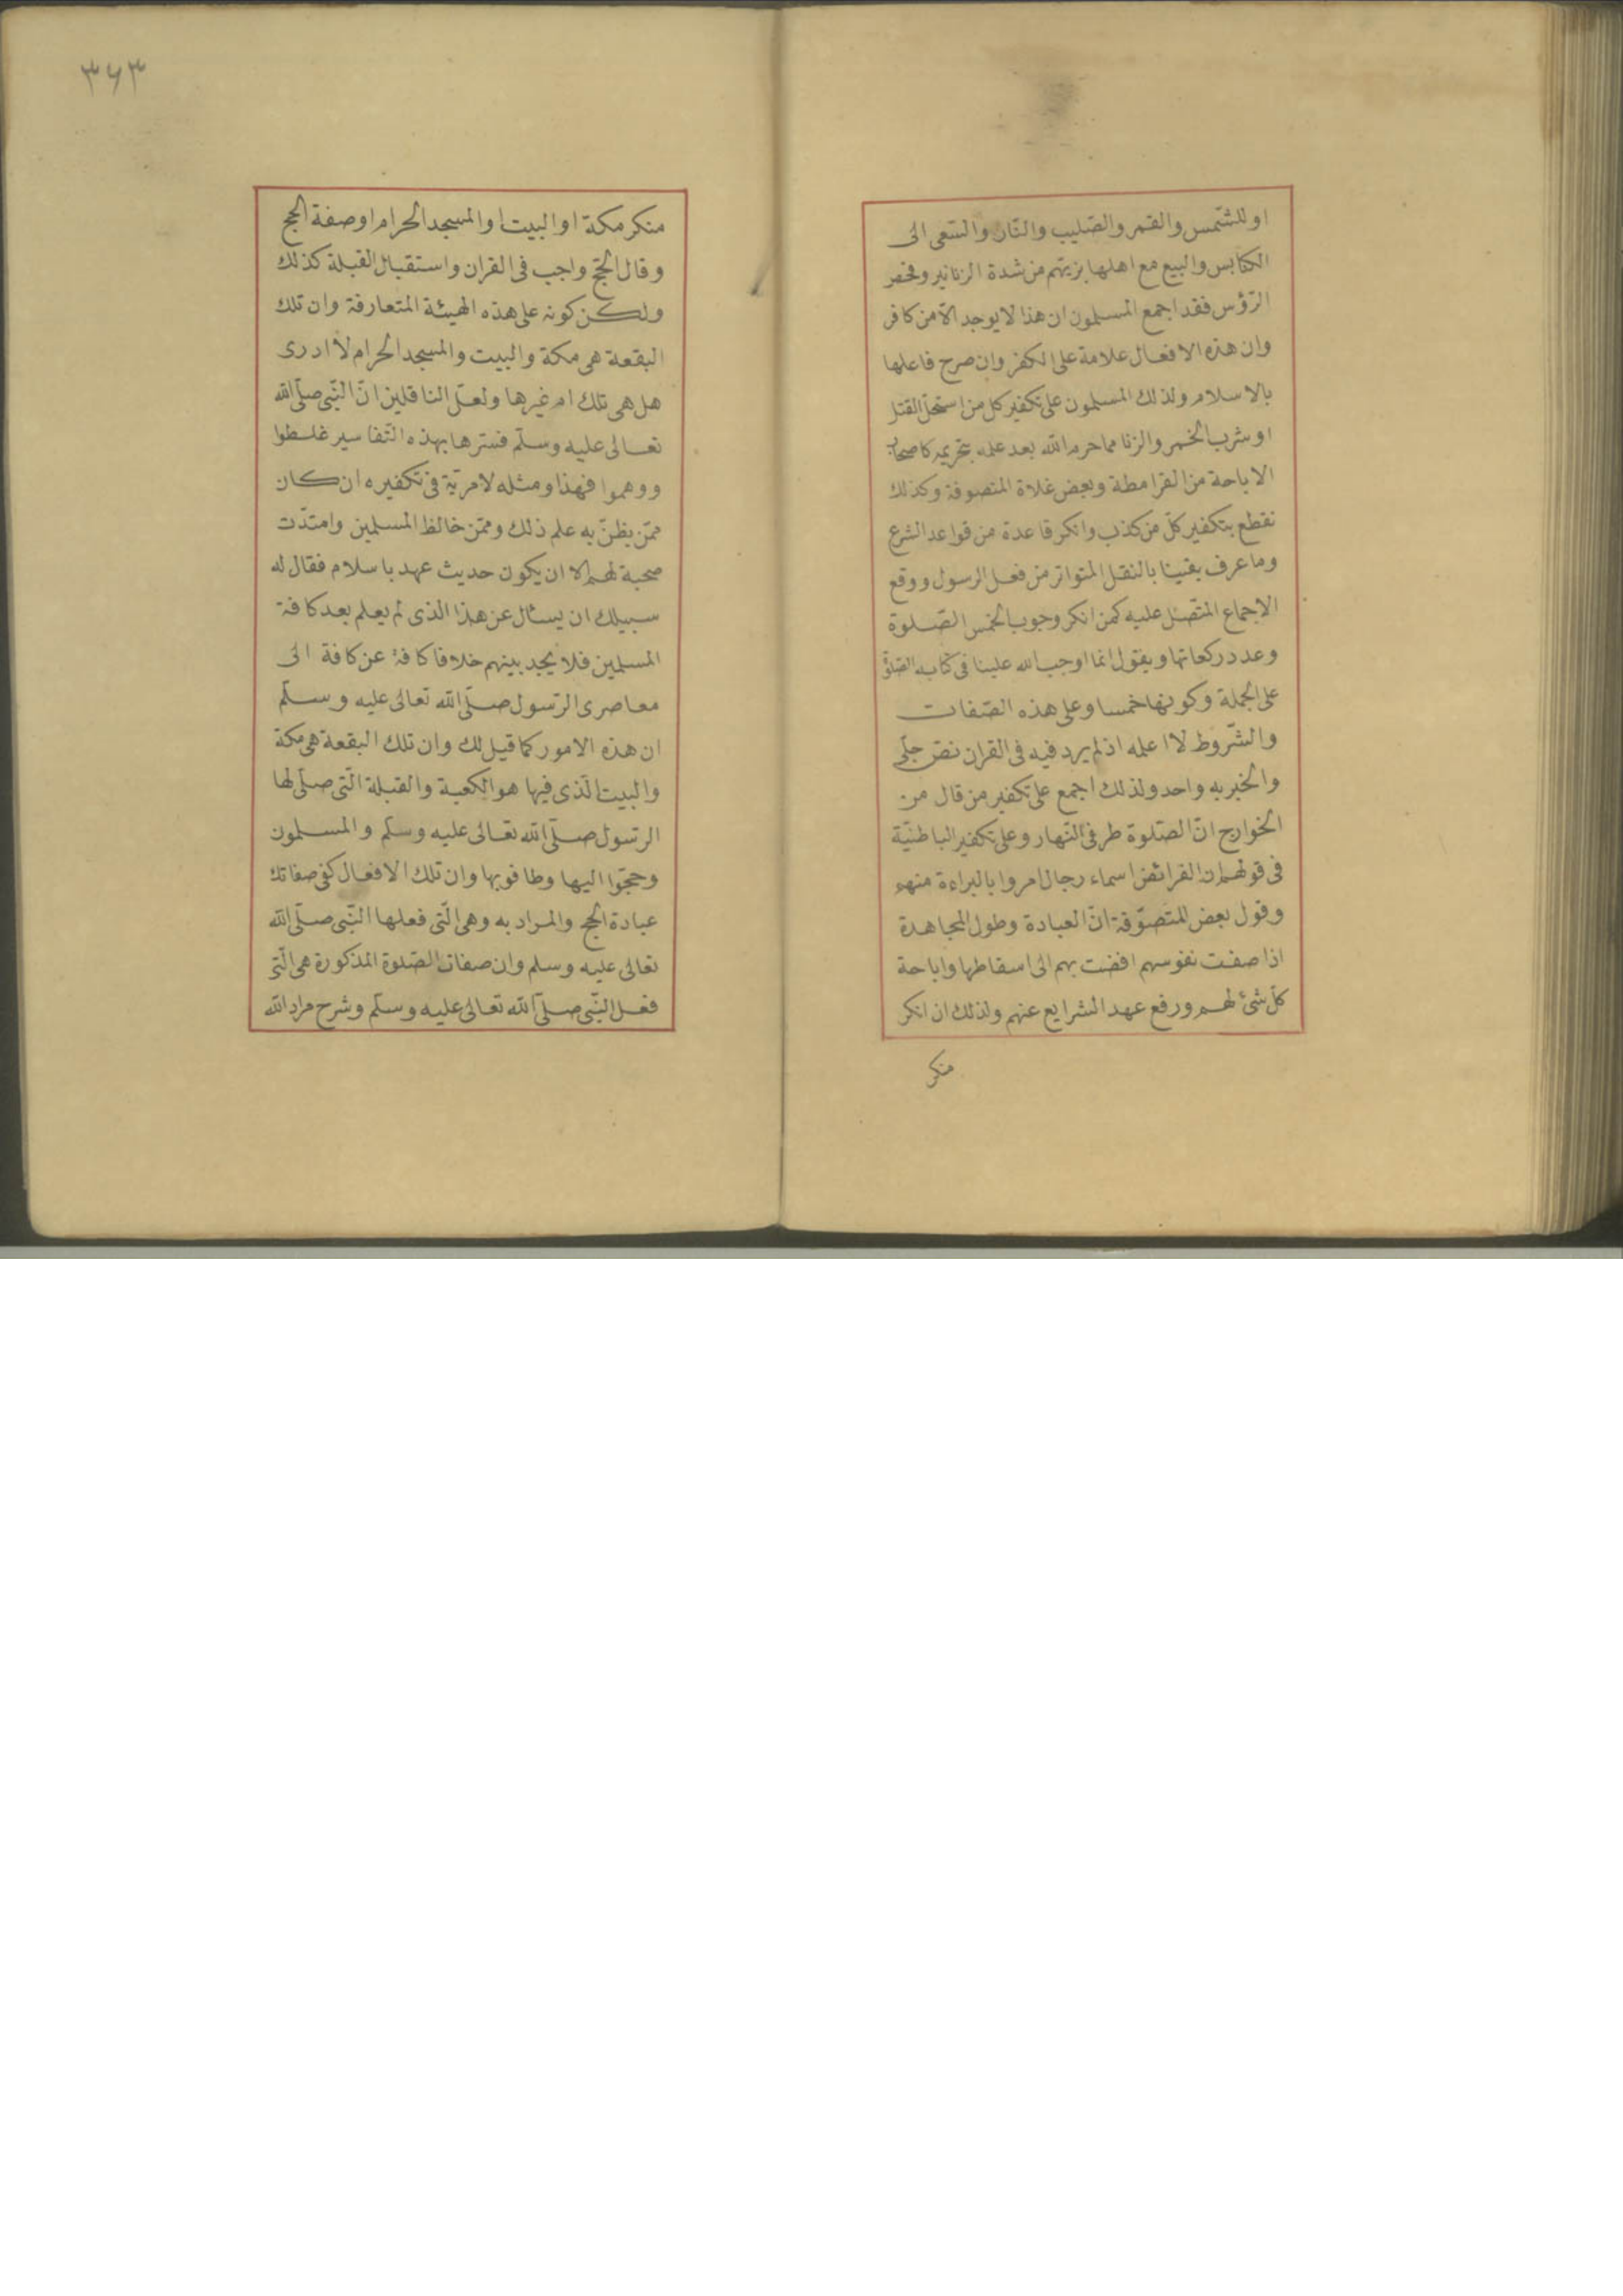 او للشّمس والقمر والصّليب والنّار والسّعى الى
الكنايس والبيع مع اهلها بزيّهم من شدة الزنانير وفحص
الرّؤس فقد اجمع المسلمون ان هذا لا يوجد الّا من كافر
وان هذه الافعال علامة على الكفر وان صرح فاعلها
بالاسلام ولذلك المسلمون على تكفير كل من استحلّ القتل
او شرب الخمر والزنا مما حرم الله بعد علمه بتحريمه كاصحاب
الاباحة من القرامطة وبعض غلاة المتصوفة وكذلك
نقطع بتكفير كلّ من كذب وانكر قاعدة من قواعد الشرع
وما عرف يقينا بالنقل المتواتر من فعل الرسول ووقع
الاجماع المتّصل عليه كمن انكر وجوب الخمس الصّلوة
وعدد ركعاتها ويقول انما اوجب الله علينا فى كتابه الصّلوة
على الجملة وكونها خمسا وعلى هذه الصّفات
والشّروط لا اعلمه اذ لم يرد فيه فى القران نصّ جلّى
والخبر به واحد ولذلك اجمع على تكفير من قال من
الخوارج انّ الصّلوة طرفى النّهار وعلى تكفير الباطنيّة
فى قولهم ان الفرائض اسماء رجال امروا بالبراءة منهم
وقول بعض المتصوّفة انّ العبادة وطول المجاهدة
اذا صفت نفوسهم افضت بهم الى اسقاطها واباحة
كلّ شئ لهم ورفع عهد الشرايع عنهم ولذلك ان انكر
منكر
٣٦٣
منكر مكة او البيت او المسجد الحرام او صفة الحج
وقال الحجّ واجب فى القران واستقبال القبلة كذلك
ولكن كونه على هذه الهيئة المتعارفة وان تلك
البقعة هى مكة والبيت والمسجد الحرام لا ادرى
هل هى تلك ام غيرها ولعلّ الناقلين انّ النّبى صلّى الله
تعالى عليه وسلّم فسّرها بهذه التّفاسير غلطوا
ووهموا فهذا ومثله لا مريّة فى تكفيره ان كان
ممّن يظنّ به علم ذلك وممّن خالط المسلمين وامتدّت
صحبة لهم الا ان يكون حديث عهد باسلام فقال له
سبيلك ان يسئال عن هذا الذى لم يعلم بعد كافة
المسلمين فلا يجد بينهم خلافا كافة عن كافة الى
معاصرى الرّسول صلّى الله تعالى عليه وسلّم
ان هذه الامور كما قيل لك وان تلك البقعة هى مكة
والبيت الّذى فيها هو الكعبة والقبلة الّتى صلّى لها
الرّسول صلّى الله تعالى عليه وسلّم والمسلمون
وحجّوا اليها وطافوبها وان تلك الافعال كفى صفاتك
عبادة الحج والمراد به وهى الّتى فعلها النّبى صلّى الله
تعالى عليه وسلم وان صفات الصّلوة المذكورة هى الّتى
فعل النّبى صلّى الله تعالى عليه وسلّم وشرح مراد الله